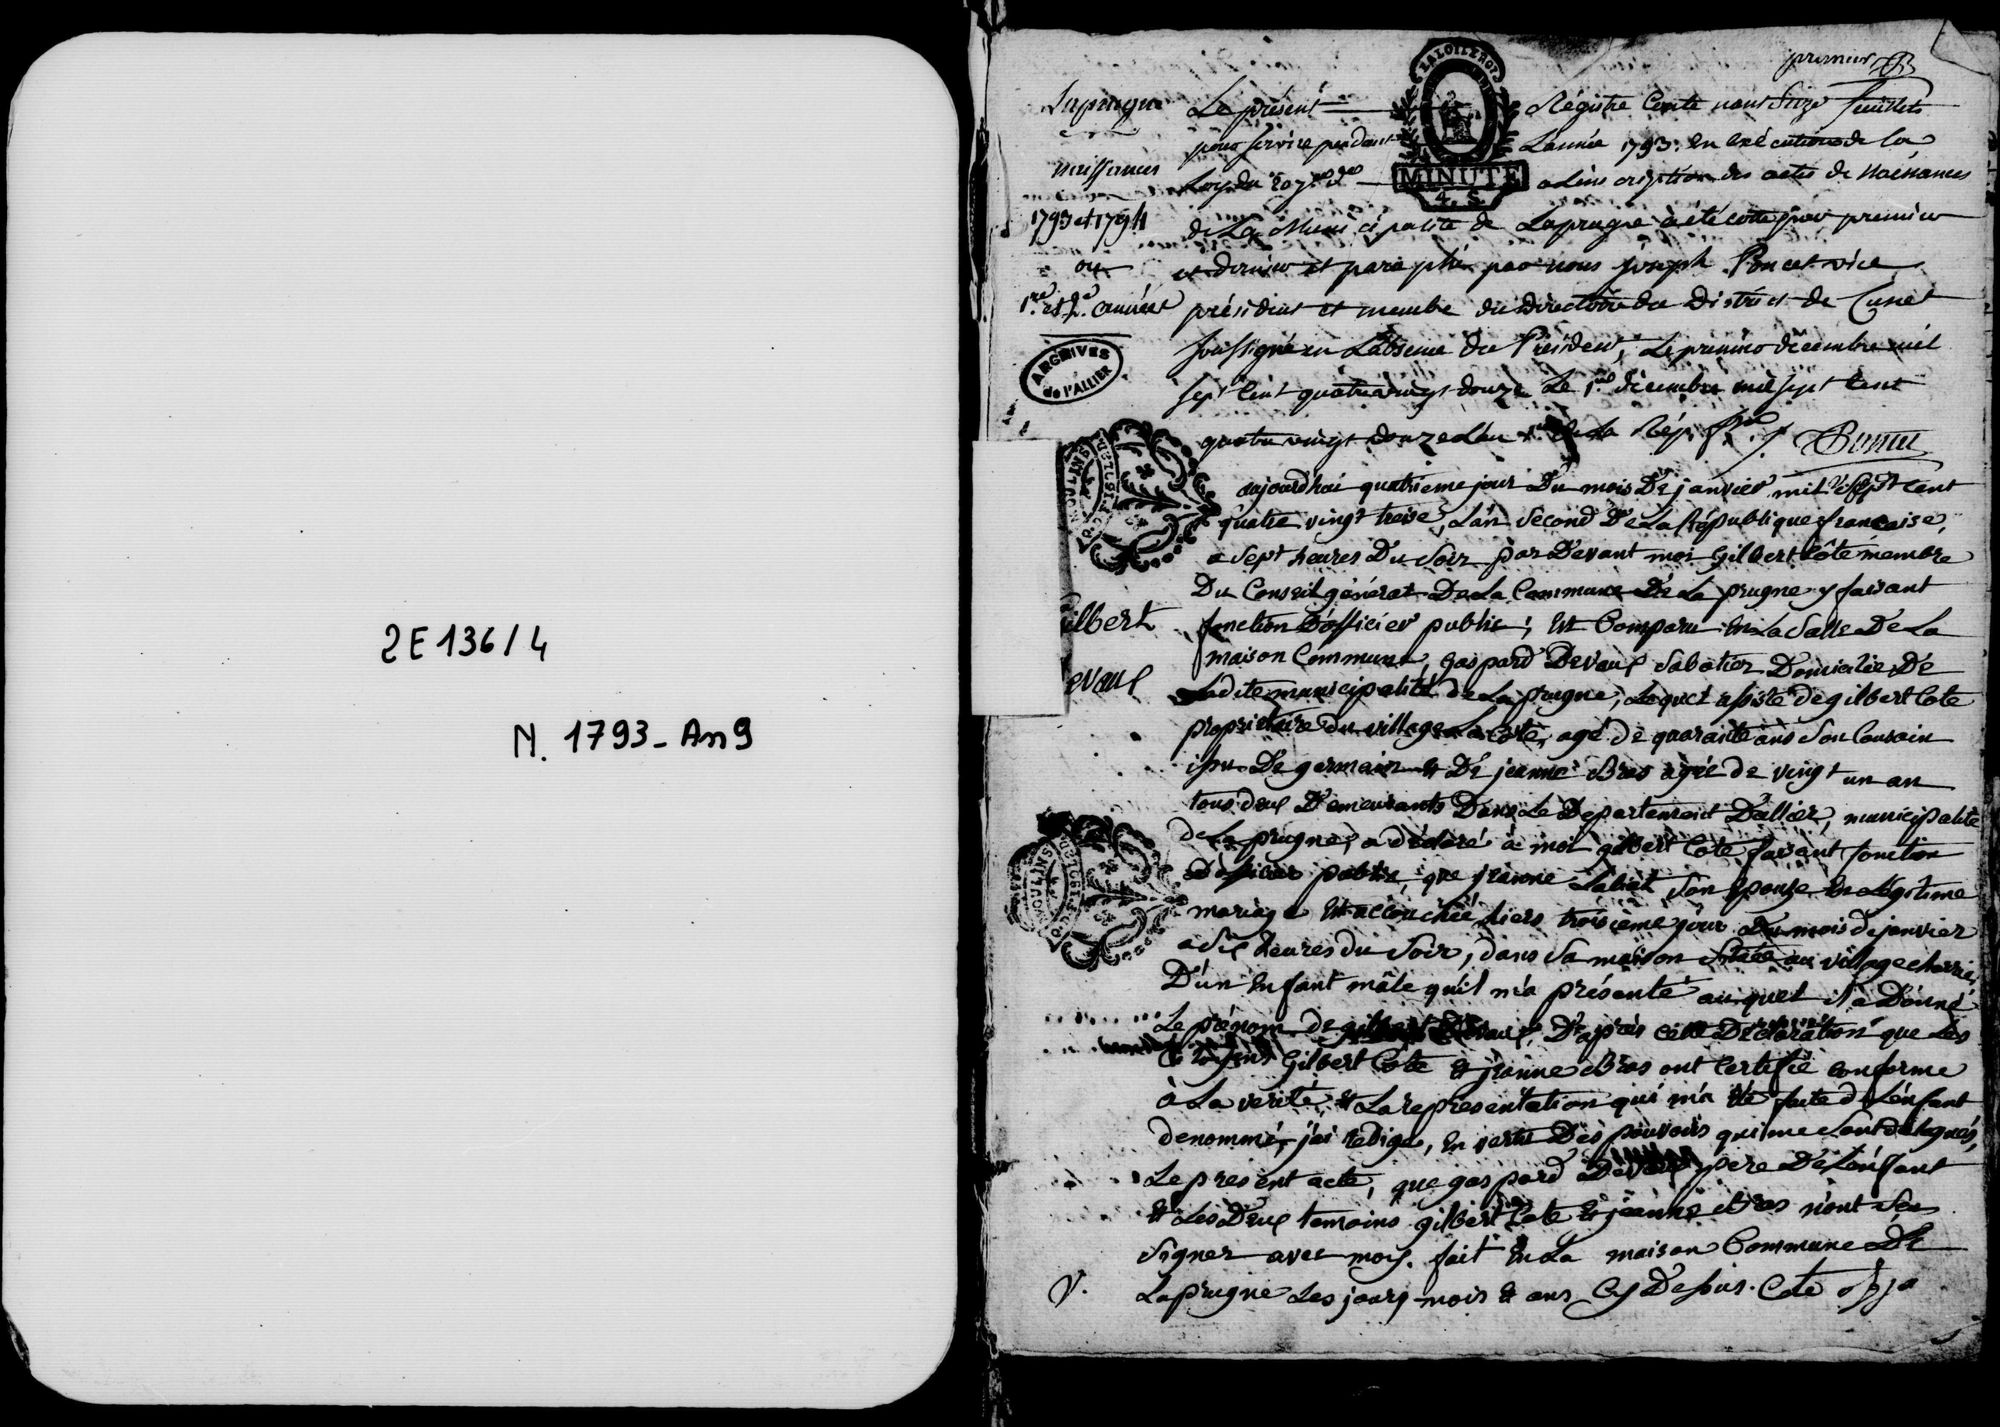 2E136/4
N. 1793 - An 9
premier
Laprugne
naissances
1793 et 1794
ou
1re et 2e année
ARCHIVES
de l'ALLIER
MINUTE
4. S.
Le présent Régistre Conte nant Seize feuillets
pour servire pendant L'année 1793. en exécution de la
Loy du 20 7bre dr a L'ins cription des actes de Naisances
de La Muni cipalité de Laprugne à été cotté par premier
et dernier et paraphé par nous Joseph Poncet vice
président et membre du Directoire du District de Cusset
soussigné en L'absence du Président, Le premier décembre mil
sept Cent quatrevingt douze Le 1er décembre mil sept Cent
quatre vingt douze L'an 1er de La Rép. fse
MOULINS
Gilbert
Devaux
aujourd'hui quatrieme jour Du mois De janvier mil Sept Cent
quatre vingt treise, L'an Second De La République francaise,
a Sept heures Du Soir par Devant moi Gilbert Côte membre
Du Conseil général De La Commune De La prugne y faisant
fonction D'officier public, Est Comparu En La Salle De La
maison Commune, gaspard Devaux Sabotier Domicilié De
Ladite municipalité de La prugne, Lequel assisté de gilbert Cote
proprietaire du village La Côte, agé de quarante ans Son Cousain
issu De germain Et De jeanne Bras agée de vingt un an
tous deux Demeurants Dans Le Departement D'allier, municipalite
de La prugne, a déclaré à moi gilbert Cote faisant fonction
D'officier public, que jeanne Labiat Son Epouse En Légitime
mariage Est accouchée hiers troisieme jour Du mois de janvier
a Six heures du Soir, dans Sa maison Située au village cherrié,
D'un Enfant mâle qu'il m'a présenté auquel il a Donné
Le prénom de gilbert Devaux, D'après cette Déclaration que Les
Citoyens Gilbert Cote Et jeanne Bras ont Certifié conforme
à La verité, Et La representation qui m'a été faite de L'enfant
denommé, j'ai redigé, En vertu Des pouvoirs qui me Sont délegués,
Le present acte, que gaspard Devaux pere De L'enfant
Et Les Deux temoins gilbert Cote Et jeanne Bras n'ont Seu
Signer avec moy. fait En La maison Commune De
Laprugne Les jours mois Et ans Cy Dessus. Cote
V.